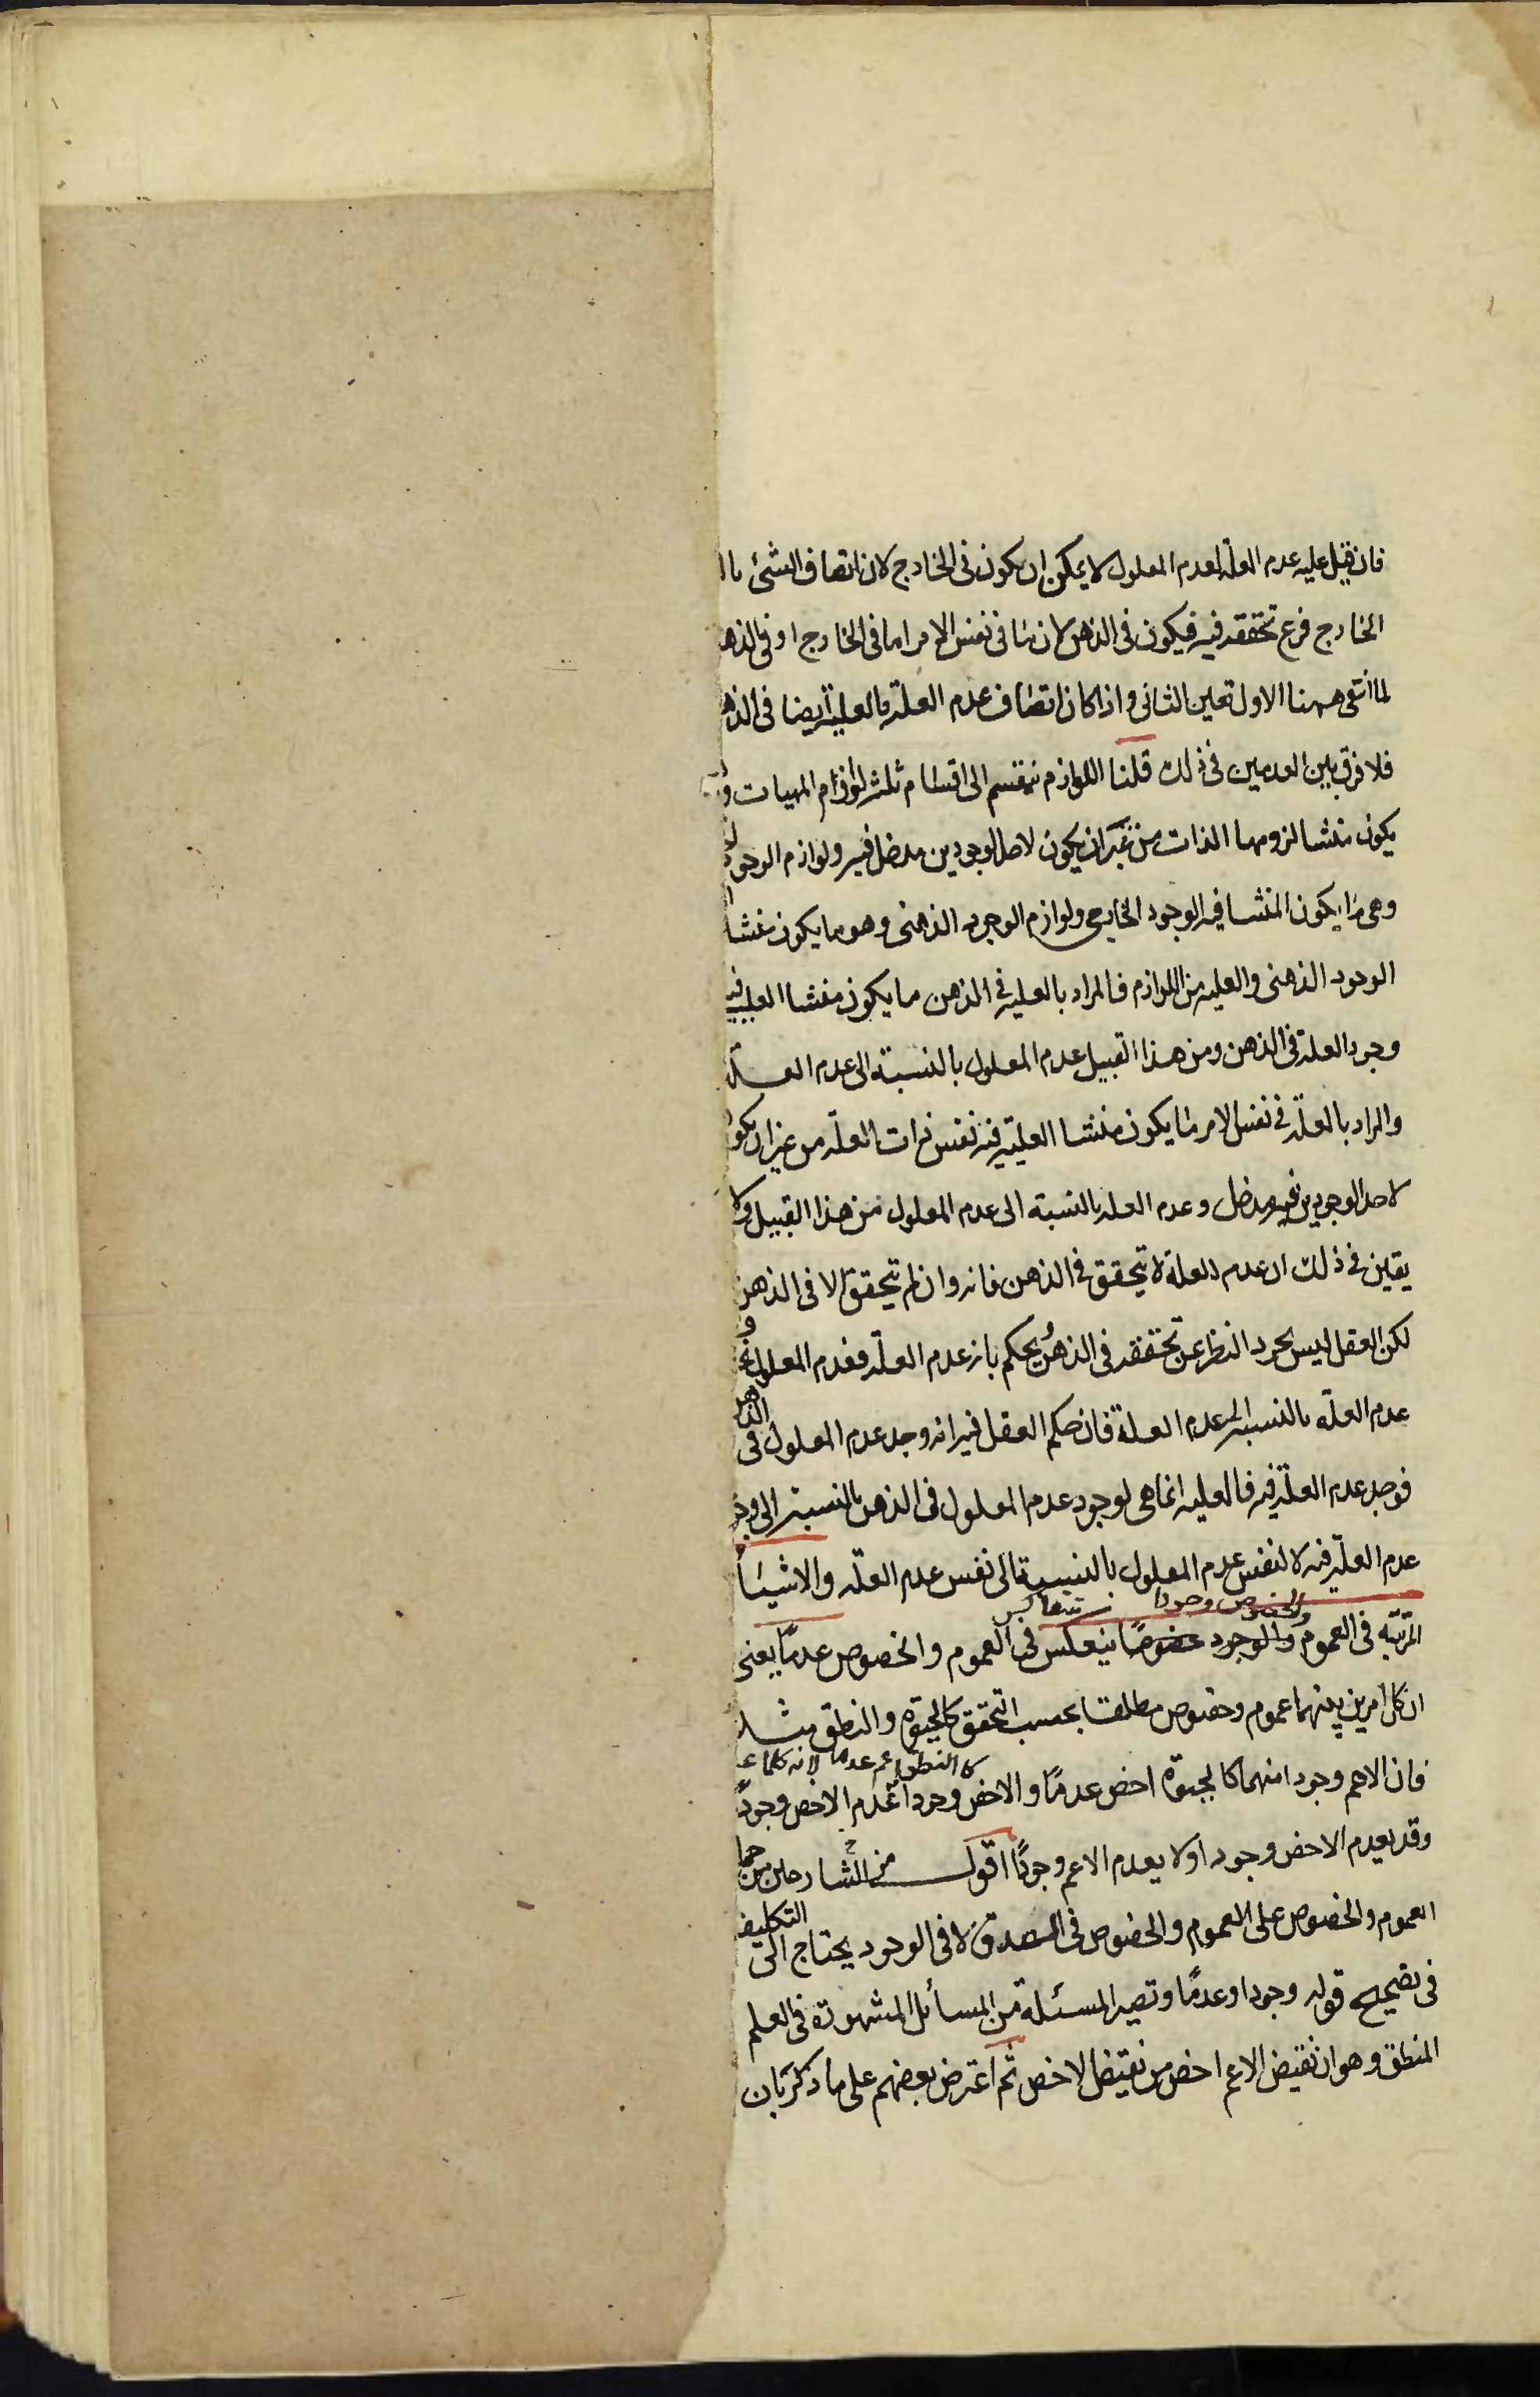 فان قيل عليه عدم العلة لعدم المعلول لا يمكن ان يكون فى الخارج لان اتصاف الشئ با
الخارج فرع تحققه فيه فيكون فى الذهن لان ما فى نفس الامر اما فى الخارج او فى الذه
لما انتفى ههنا الاول تعين الثانى و اذا كان اتصاف عدم العلة بالعلية ايضا فى الذه
فلا فرق بين العدمين فى ذلك قلنا اللوازم ينقسم الى اقسام ثلثة لوازم المهيات و
يكون منشا لزومها الذات من غير ان يكون لاحد الوجودين مدخل فيه ولوازم الوجود
وهى ما يكون المنشا فيه الوجود الخارجى ولوازم الوجود الذهنى وهو ما يكون منشا
الوجود الذهنى والعلية من اللوازم فالمراد بالعلية فى الذهن ما يكون منشا العلية فيه
وجود العلة فى الذهن ومن هذا القبيل عدم المعلول بالنسبة الى عدم العلة
والمراد بالعلة فى نفس الامر ما يكون منشا العلية فيه نفس ذات العلة من غير ان يكو
لاحد الوجودين فيه مدخل وعدم العلة بالنسبة الى عدم المعلول من هذا القبيل ولا
يقين فى ذلك ان عدم العلة لا يتحقق فى الذهن فانه وان لم يتحقق الا فى الذهن
لكن العقل ليس يجرد النظر عن تحققه فى الذهن ويحكم بان عدم العلة فعدم المعلول
عدم العلة بالنسبة الى عدم العلة فان حكم العقل فيه انه وجد عدم المعلول فى الذهن
فوجد عدم العلة فيه فالعلية انما هى لوجود عدم المعلول فى الذهن بالنسبة الى وجو
عدم العلة فيه لا لنفس عدم المعلول بالنسبة الى نفس عدم العلة والاشياء
والخصوص وجودا يتعاكس
المرتبة فى العموم والوجود خصوصا ينعكس فى العموم والخصوص عدما يعنى
ان كل امرين بينهما عموم وخصوص مطلقا بحسب التحقق كالحيوة والنطق مثلا
كالنطق اعم عدما لانه كلما
فان الاعم وجودا منهما كالحيوة اخص عدما والاخص وجودا عدم الاخص وجودا
وقد يعدم الاخص وجودا ولا يعدم الاعم وجودا اقول من الشارحين من حمل
العموم والخصوص على العموم والخصوص فى الصدق لا فى الوجود يحتاج الى التكليف
فى تصحيح قوله وجودا وعدما وتصير المسئلة من المسائل المشهورة فى العلم
المنطق وهو ان نقيض الاعم اخص من نقيض الاخص ثم اعترض بعضهم على ما ذكر بان